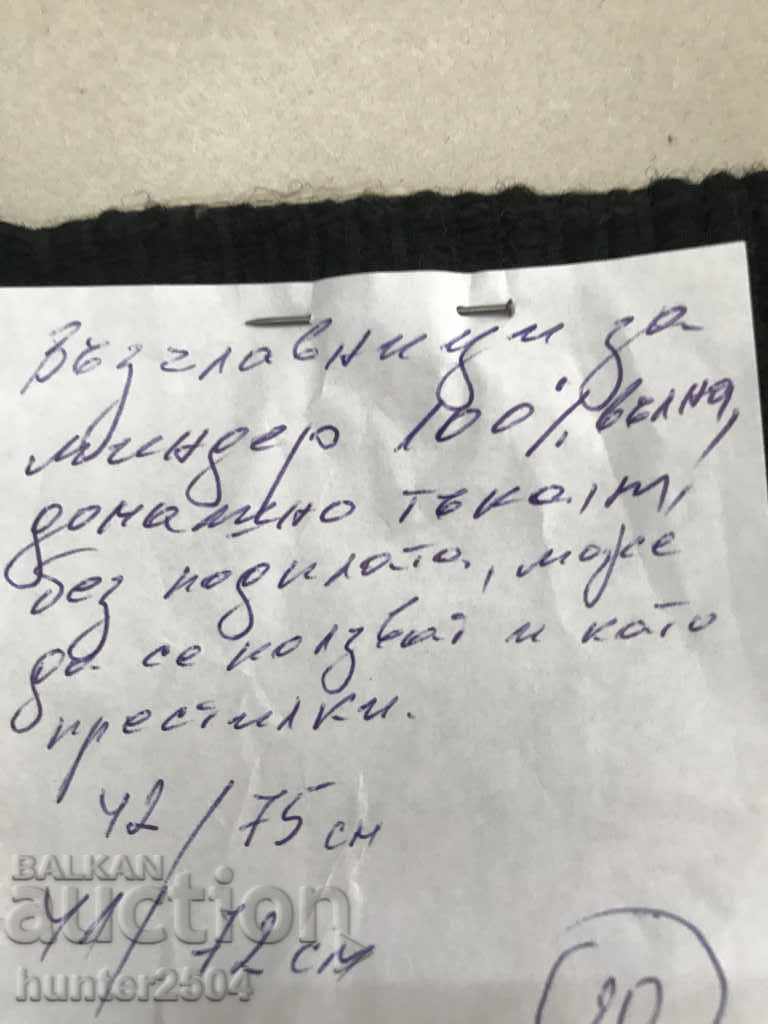 Възглавници за
миндер 100% вълна,
домашно тъкат,
без подплата, може
да се ползват и като
престилки.
42/75 см
41/72 см
BALKAN
auction
hunter2504